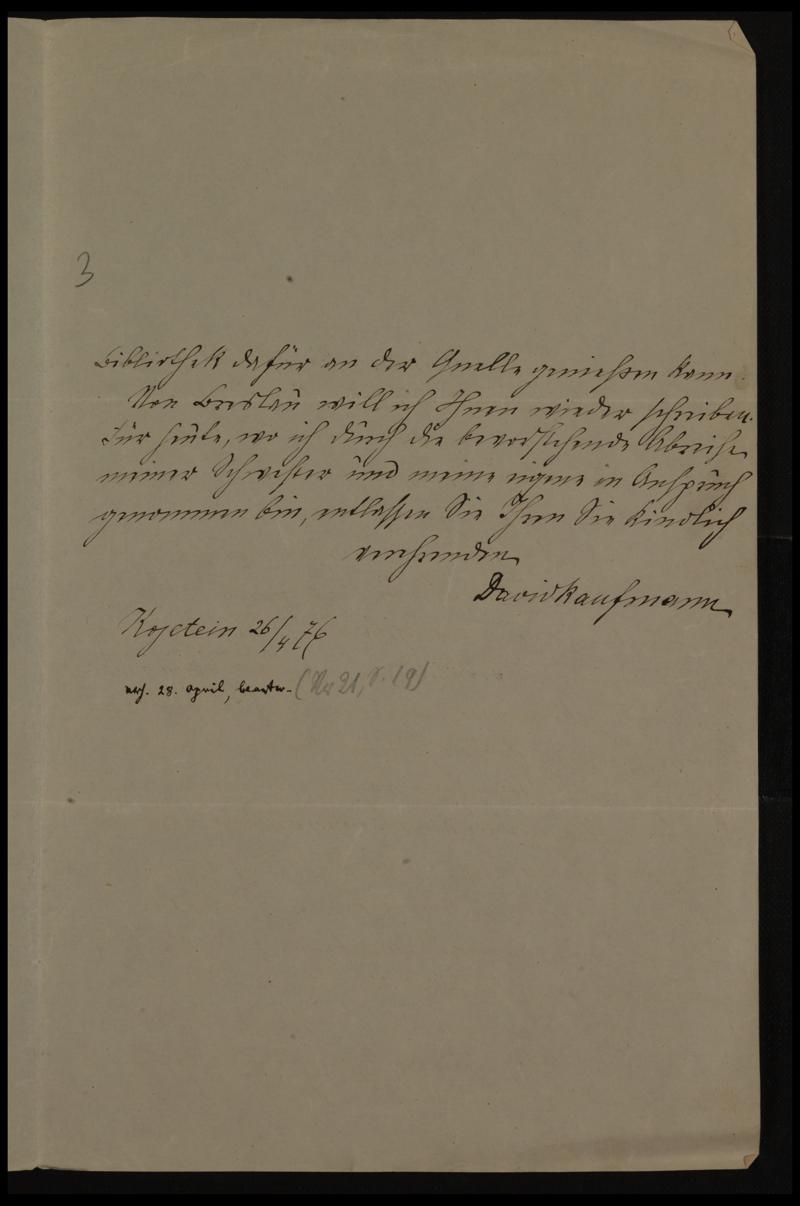 3
Bibliothek dafür an der Quelle genießen kann.
Von Breslau will ich Ihnen wieder schreiben.
Für heute, wo ich durch die bevorstehende Abreise
meiner Schwester und meine eigene in Anspruch
genommen bin, entlassen Sie Ihren Sie kindlich
verehrenden
David Kaufmann
Kojetein 26/4 76
28. April, beantw. (Nr 21, S. 19)